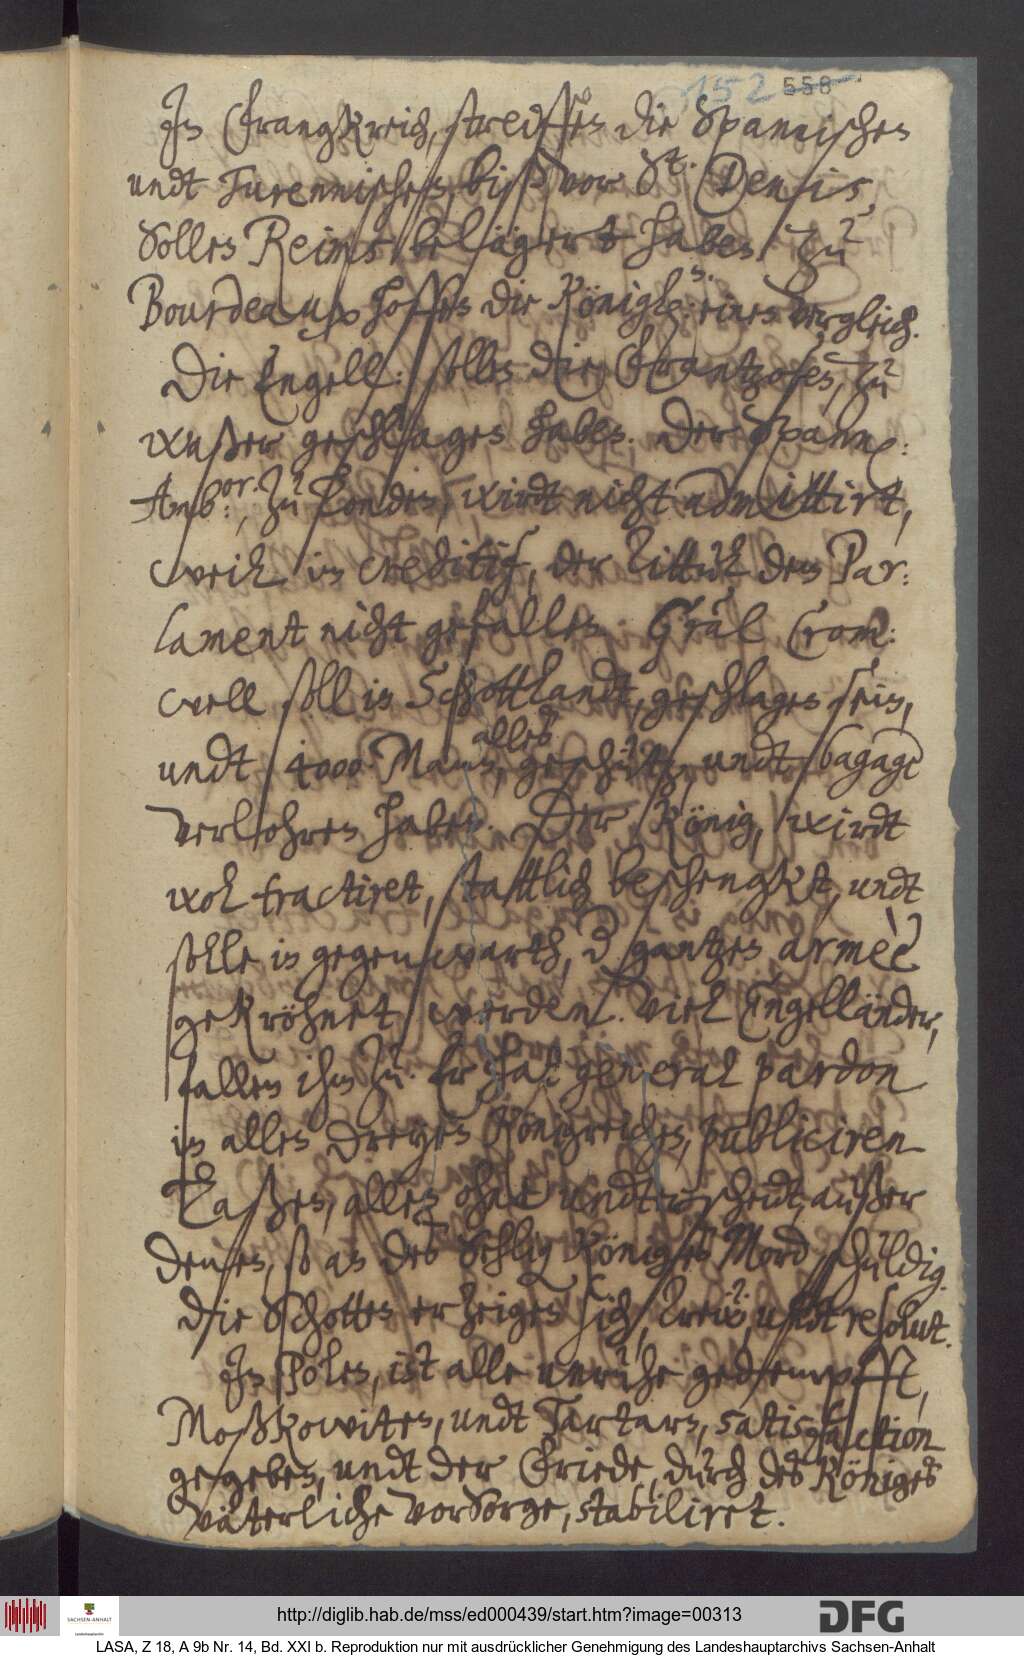 152 558
In Franckreich, streiffen die Spannischen
undt Turennischen, biß vor St. Denis,
Sollen Reims belägert haben. Zu
Bourdeaux hoffen die Königl:n. einen vergleich.
Die Engell: sollen die Frantzosen, zu
waßer geschlagen haben. Der Spann:
Amb:or., zu Londen, wirdt nicht admittirt,
weil in creditif, der Tittul dem Par:
lament nicht gefallen. Gräl Crom:
well soll in Schottlandt, geschlagen sein,
undt 4000 Mann, alles geschütz, undt bagage
verlohren haben. Der König, wirdt
wol tractiret, stattlich beschengkt, undt
solle in gegenwarth, d. gantzen armèè
gekröhnet werden. Viel Engelländer,
fallen ihm zu. Er hat general pardon
in allen dreyen Königreichen, publiciren
laßen, allen ohne undterscheidt, außer
denen, so an des Sehlig. Königes Mord schuldig.
Die Schotten erzeigen sich, trew, undt resolut.
In Polen, ist alle unruhe gedempfft,
Moßkowiten, undt Tartarn, satisfaction
gegeben, undt der Friede, durch des Königes
väterliche vorsorge, stabiliret.
http://diglib.hab.de/mss/ed000439/start.htm?image=00313
SACHSEN-ANHALT
DFG
LASA, Z 18, A 9b Nr. 14, Bd. XXI b. Reproduktion nur mit ausdrücklicher Genehmigung des Landeshauptarchivs Sachsen-Anhalt